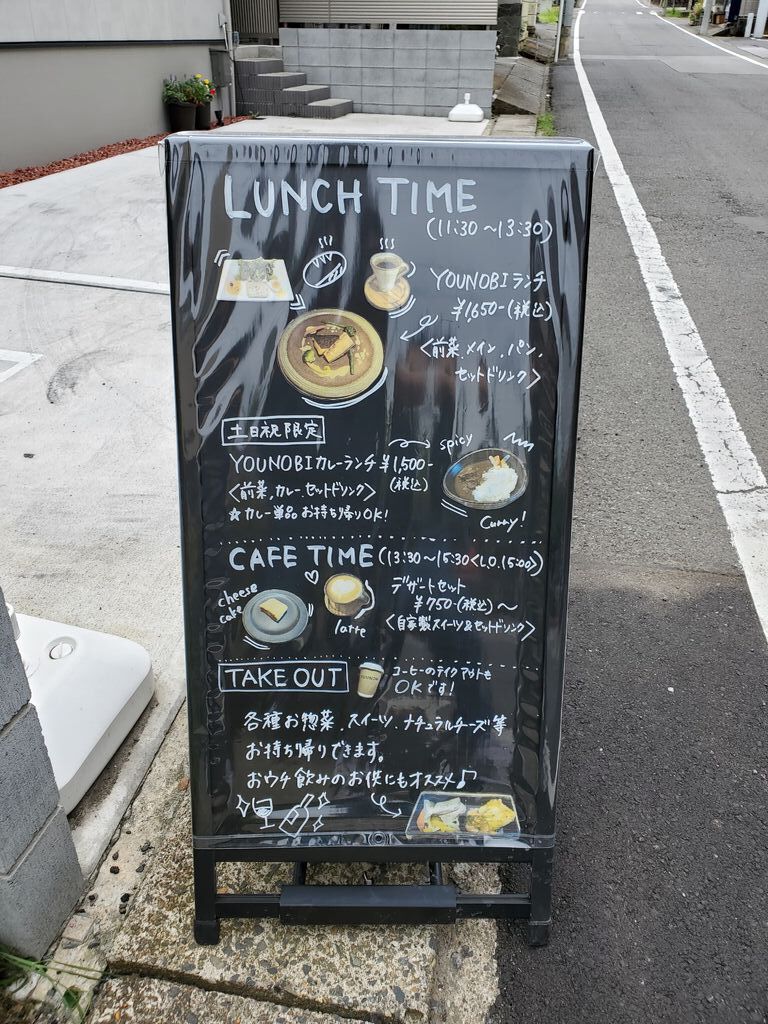 LUNCH TIME
(11:30～13:30)
YOUNOBIランチ
¥1,650-(税込)
<前菜.メイン.パン.
セットドリンク>
土日祝限定
spicy
YOUNOBIカレーランチ ¥1,500-
(税込)
<前菜.カレー.セットドリンク>
☆カレー単品お持ち帰りOK!
Curry!
CAFE TIME (13:30～15:30<L.O.15:00>)
cheese
cake
latte
デザートセット
¥750-(税込)～
<自家製スイーツ&セットドリンク>
TAKE OUT
コーヒーのテイクアウトも
OKです!
各種お惣菜.スイーツ.ナチュラルチーズ等
お持ち帰りできます。
おウチ飲みのお供にもオススメ♪